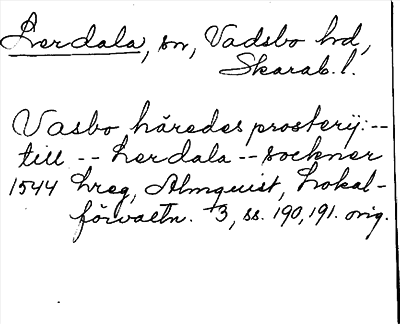 Lerdala, sn, Vadsbo hd,
Skarab. l.
Vasbo häredes prosterij: --
till -- Lerdala -- sockner
1544 Lreg, Almquist, Lokal-
förvaltn. 3, ss. 190, 191. orig.